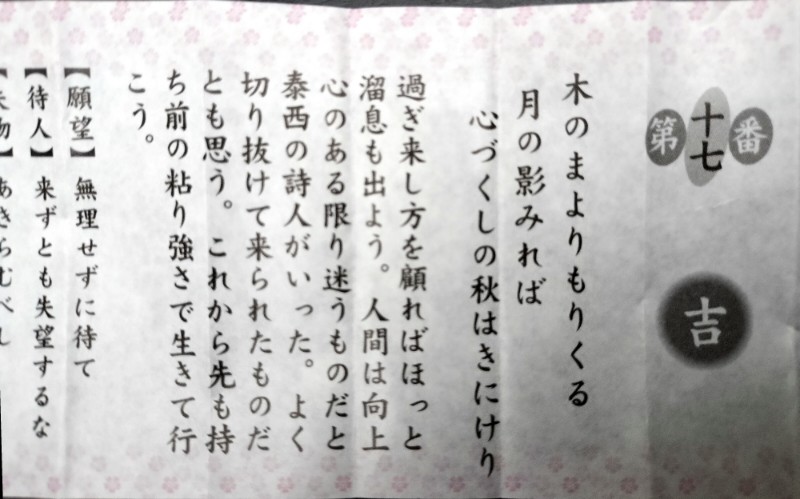 第十七番
吉
木のまよりもりくる
月の影みれば
心づくしの秋はきにけり
過ぎ来し方を顧ればほっと
溜息も出よう。人間は向上
心のある限り迷うものだと
泰西の詩人がいった。よく
切り抜けて来られたものだ
とも思う。これから先も持
ち前の粘り強さで生きて行
こう。
【願望】無理せずに待て
【待人】来ずとも失望するな
【失物】あきらむべし